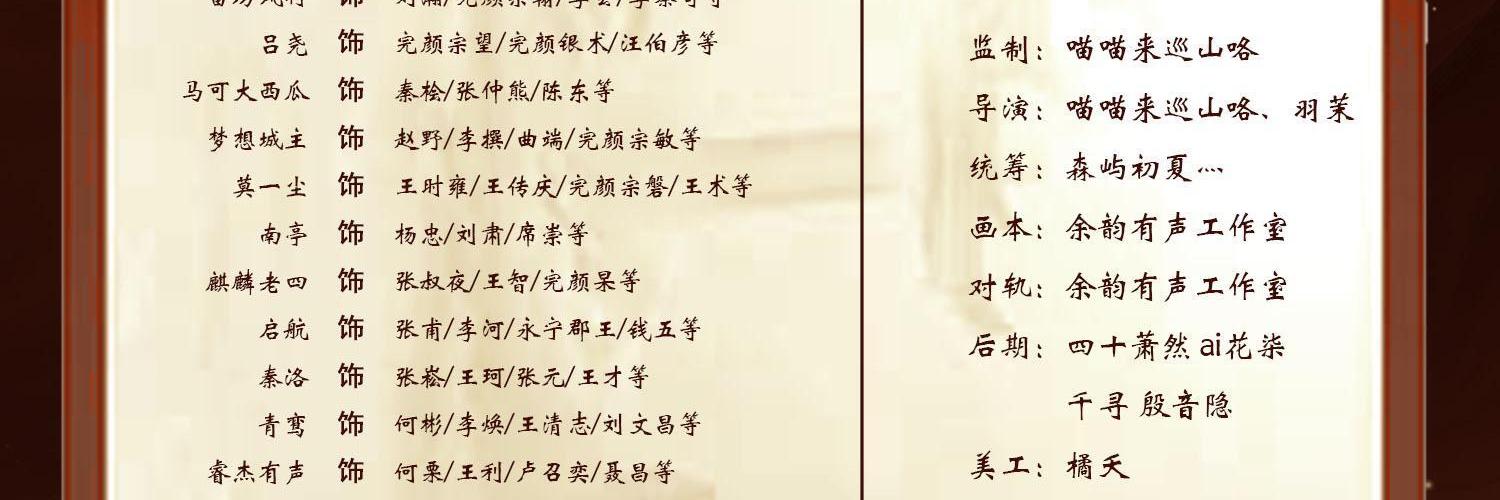 吕尧 饰 完颜宗望/完颜银术/汪伯彦等
马可大西瓜 饰 秦桧/张仲熊/陈东等
梦想城主 饰 赵野/李撰/曲端/完颜宗敏等
莫一尘 饰 王时雍/王传庆/完颜宗磐/王术等
南亭 饰 杨忠/刘肃/席崇等
麒麟老四 饰 张叔夜/王智/完颜杲等
启航 饰 张甫/李河/永宁郡王/钱五等
秦洛 饰 张崧/王珂/张元/王才等
青鸾 饰 何彬/李焕/王清志/刘文昌等
睿杰有声 饰 何栗/王利/卢召奕/聂昌等
监制：喵喵来巡山咯
导演：喵喵来巡山咯、羽茉
统筹：森屿初夏…
画本：余韵有声工作室
对轨：余韵有声工作室
后期：四十萧然 ai花柒
千寻 殷音隐
美工：橘夭